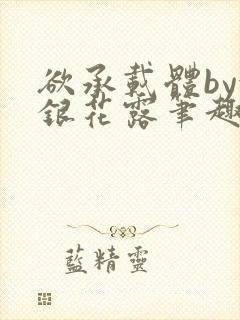 欲承載體by
銀花露筆趣
藍精靈